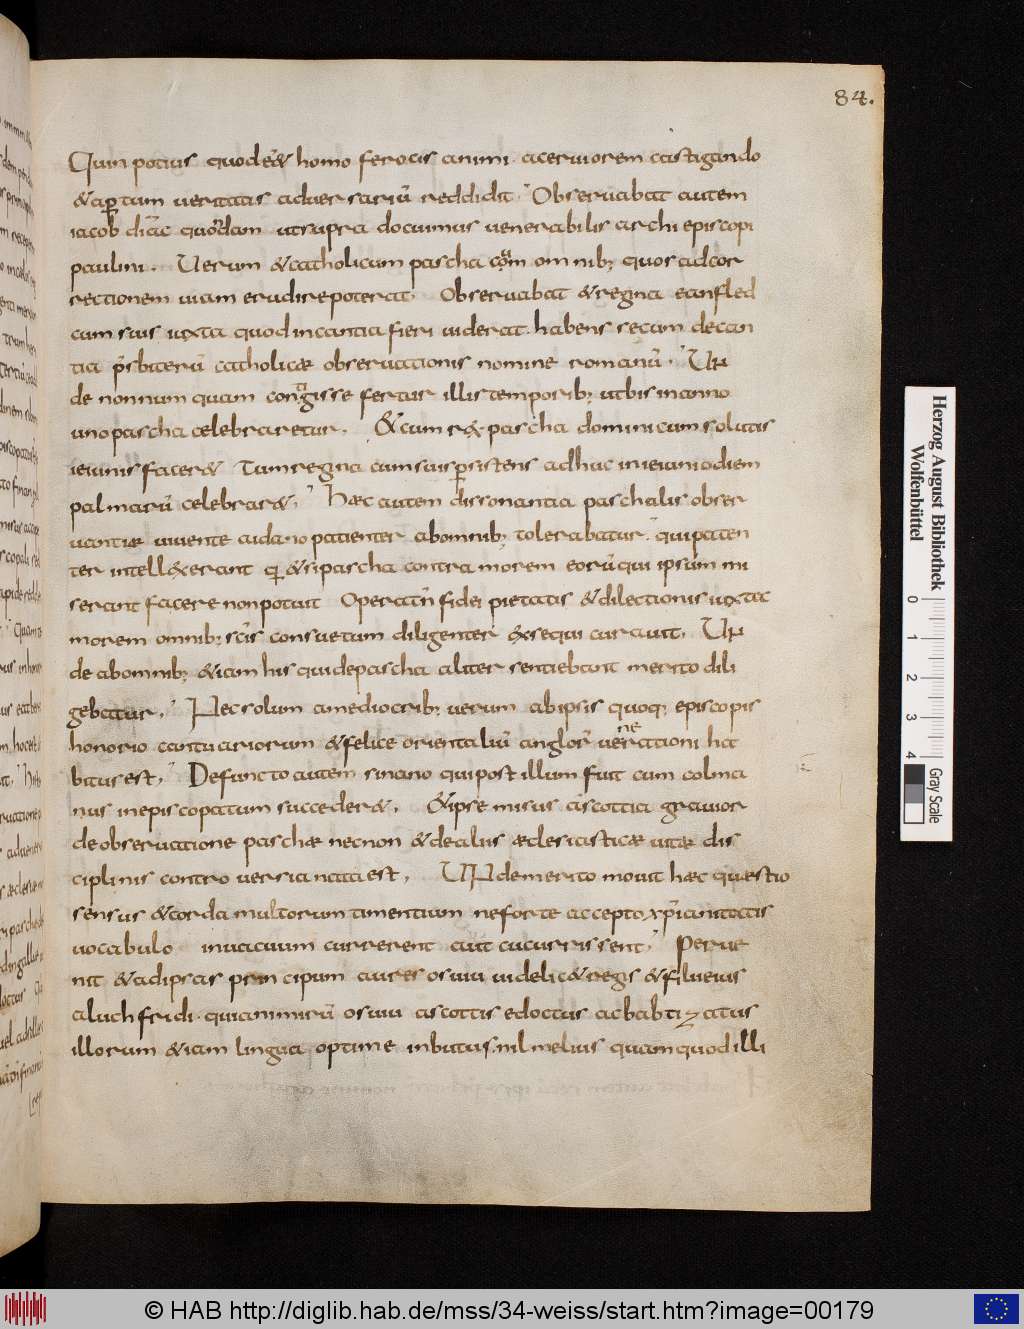 84.
Quin potius quod eēt& homo ferocis animi · acerviorem castigando
& ap̱tum veritatis adversariū reddidit · Observabat autem
iacob diac̄ quōdam ut supra docuimus venerabilis archi episcopi
paulini · Verum & catholicam pascha cōm omnib; quos ad cor
rectionem viam erudire poterat · Observabat & regina eanfled
cum suis iuxta quod in cantia fieri viderat · habens secum de can
tia p̄sbiterū catholicæ observationis nomine romanū · Vn
de nonnumquam contigisse fertur illis temporib; ut bis in anno
uno pascha celebraretur · Et cum rex pascha dominicum solutis
ieiuniis facer& Tum regina cum suis p̱sistens adhuc in ieiunio diem
palmarū celebrar& · Hæc autem dissonantia paschalis obser
vantiæ vivente aidano patienter ab omnib; tolerabatur · qui paten
ter intellexerant q &si pascha contra morem eorū qui ipsum mi
serant facere non potuit Opera tn̄ fidei pietatis & dilectionis iuxta
morem omnib; scīs consuetum diligenter exsequi curavit · Vn
de ab omnib; &iam his qui de pascha aliter sentiebant merito dili
gebatur · Nec solum a mediocrib; verum ab ipsis quoq; episcopis
honorio cantuariorum & felice orientaliū anglorū venerationi ha
bitus est · Defuncto autem finano qui post illum fuit cum colma
nus in episcopatum succeder& · & ipse misus a scottia gravior
de observatione paschæ necnon & de aliis æclesiasticæ vitæ dis
ciplinis controversia nata est · Vnde merito movit hæc quæstio
sensus & corda multorum timentium ne forte accepto xp̄ianitatis
vocabulo in vacuum currerent aut cucurrissent · Perve
nit & ad ipsas principum aures osuiu videlic& regis & filii eius
aluchfridi · quia nimirū osuiu a scottis edoctus ac babtizatus
illorum &iam lingua optime inbutus · nil melius quam quod illi
Herzog August Bibliothek
Wolfenbüttel
0 1 2 3 4
Gray Scale
© HAB http://diglib.hab.de/mss/34-weiss/start.htm?image=00179